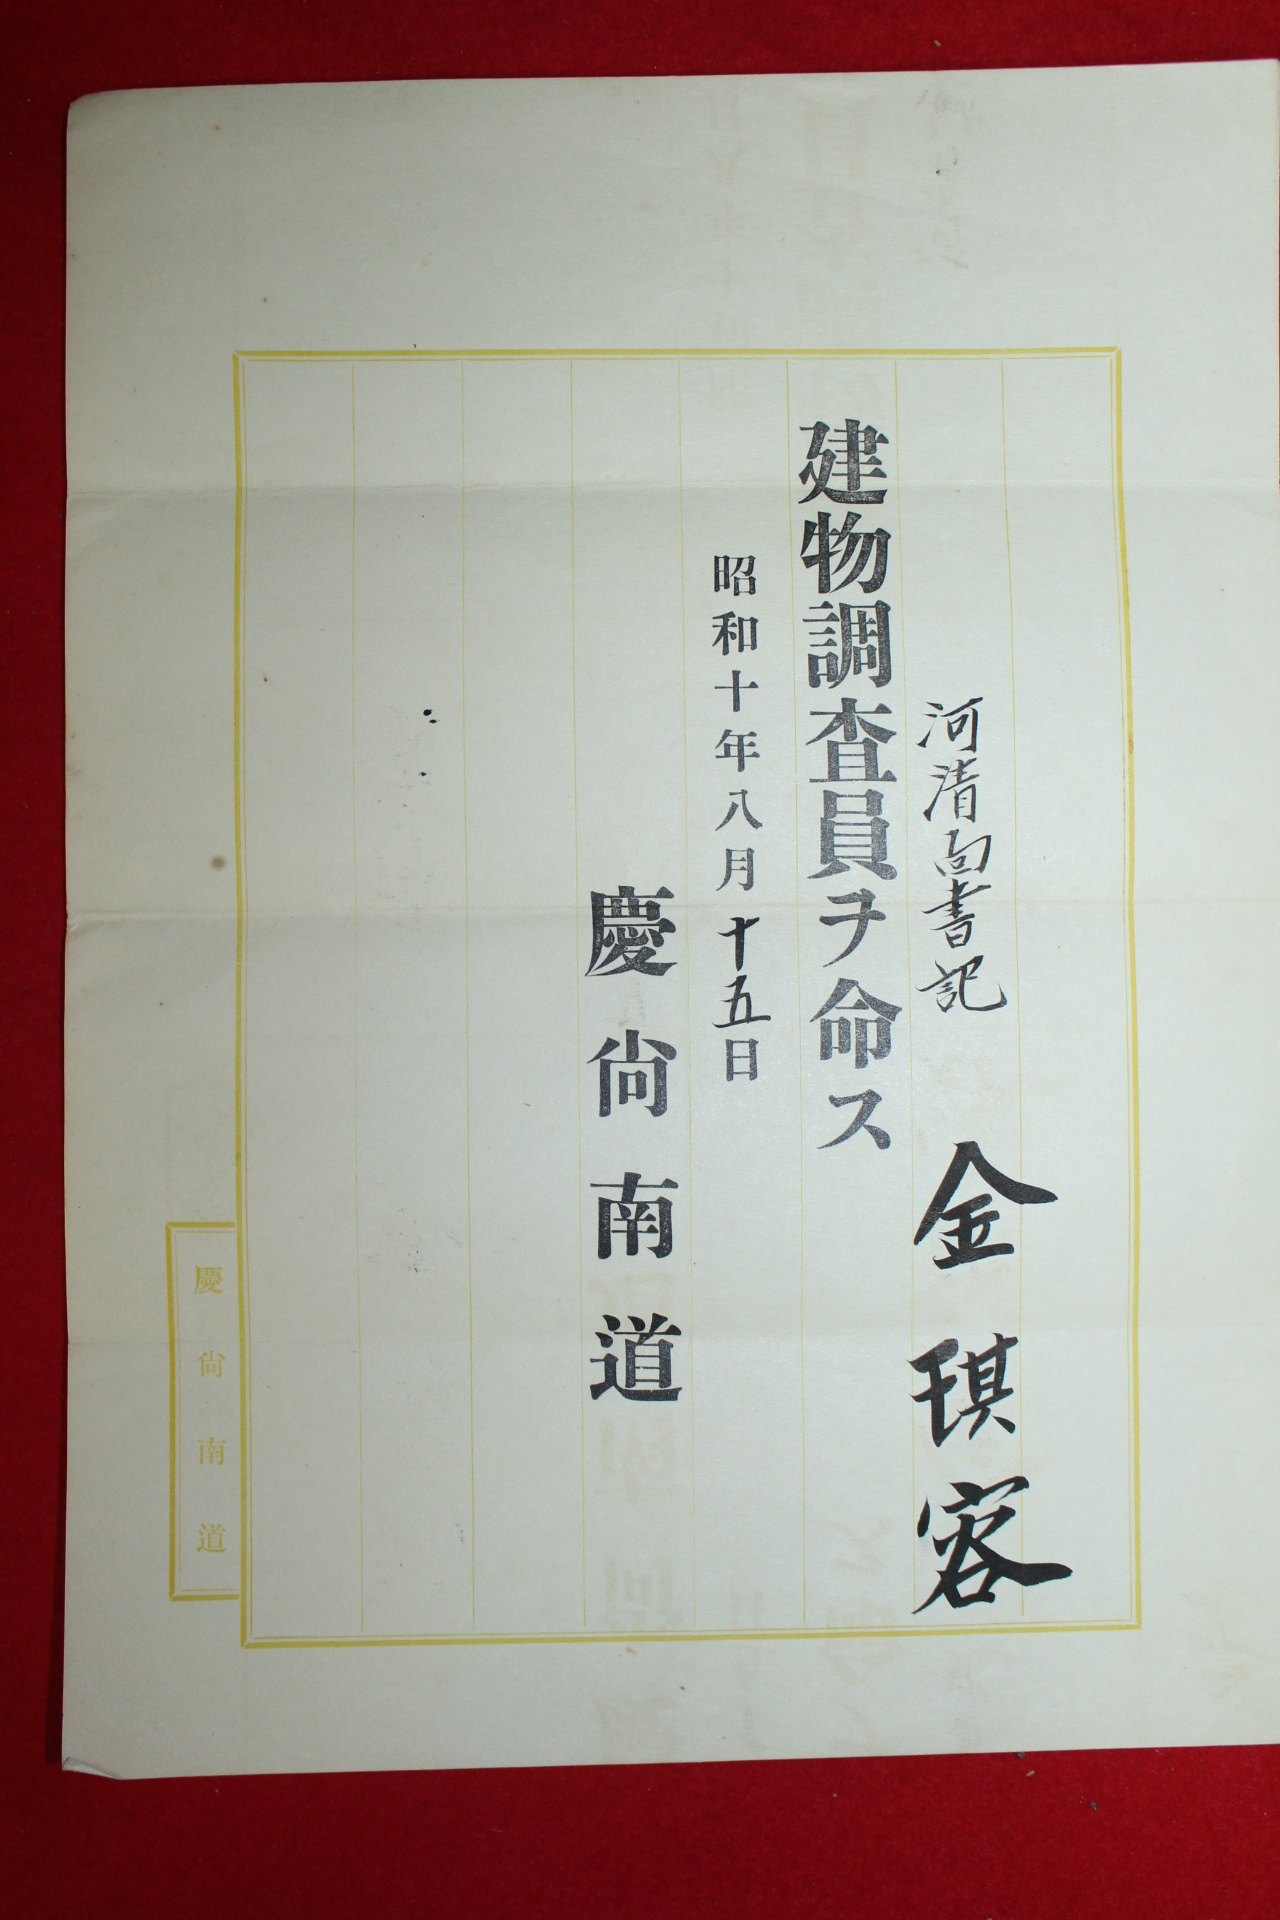 河清面書記
金琪容
建物調査員ヲ命ス
昭和十年八月十五日
慶尙南道
慶尙南道